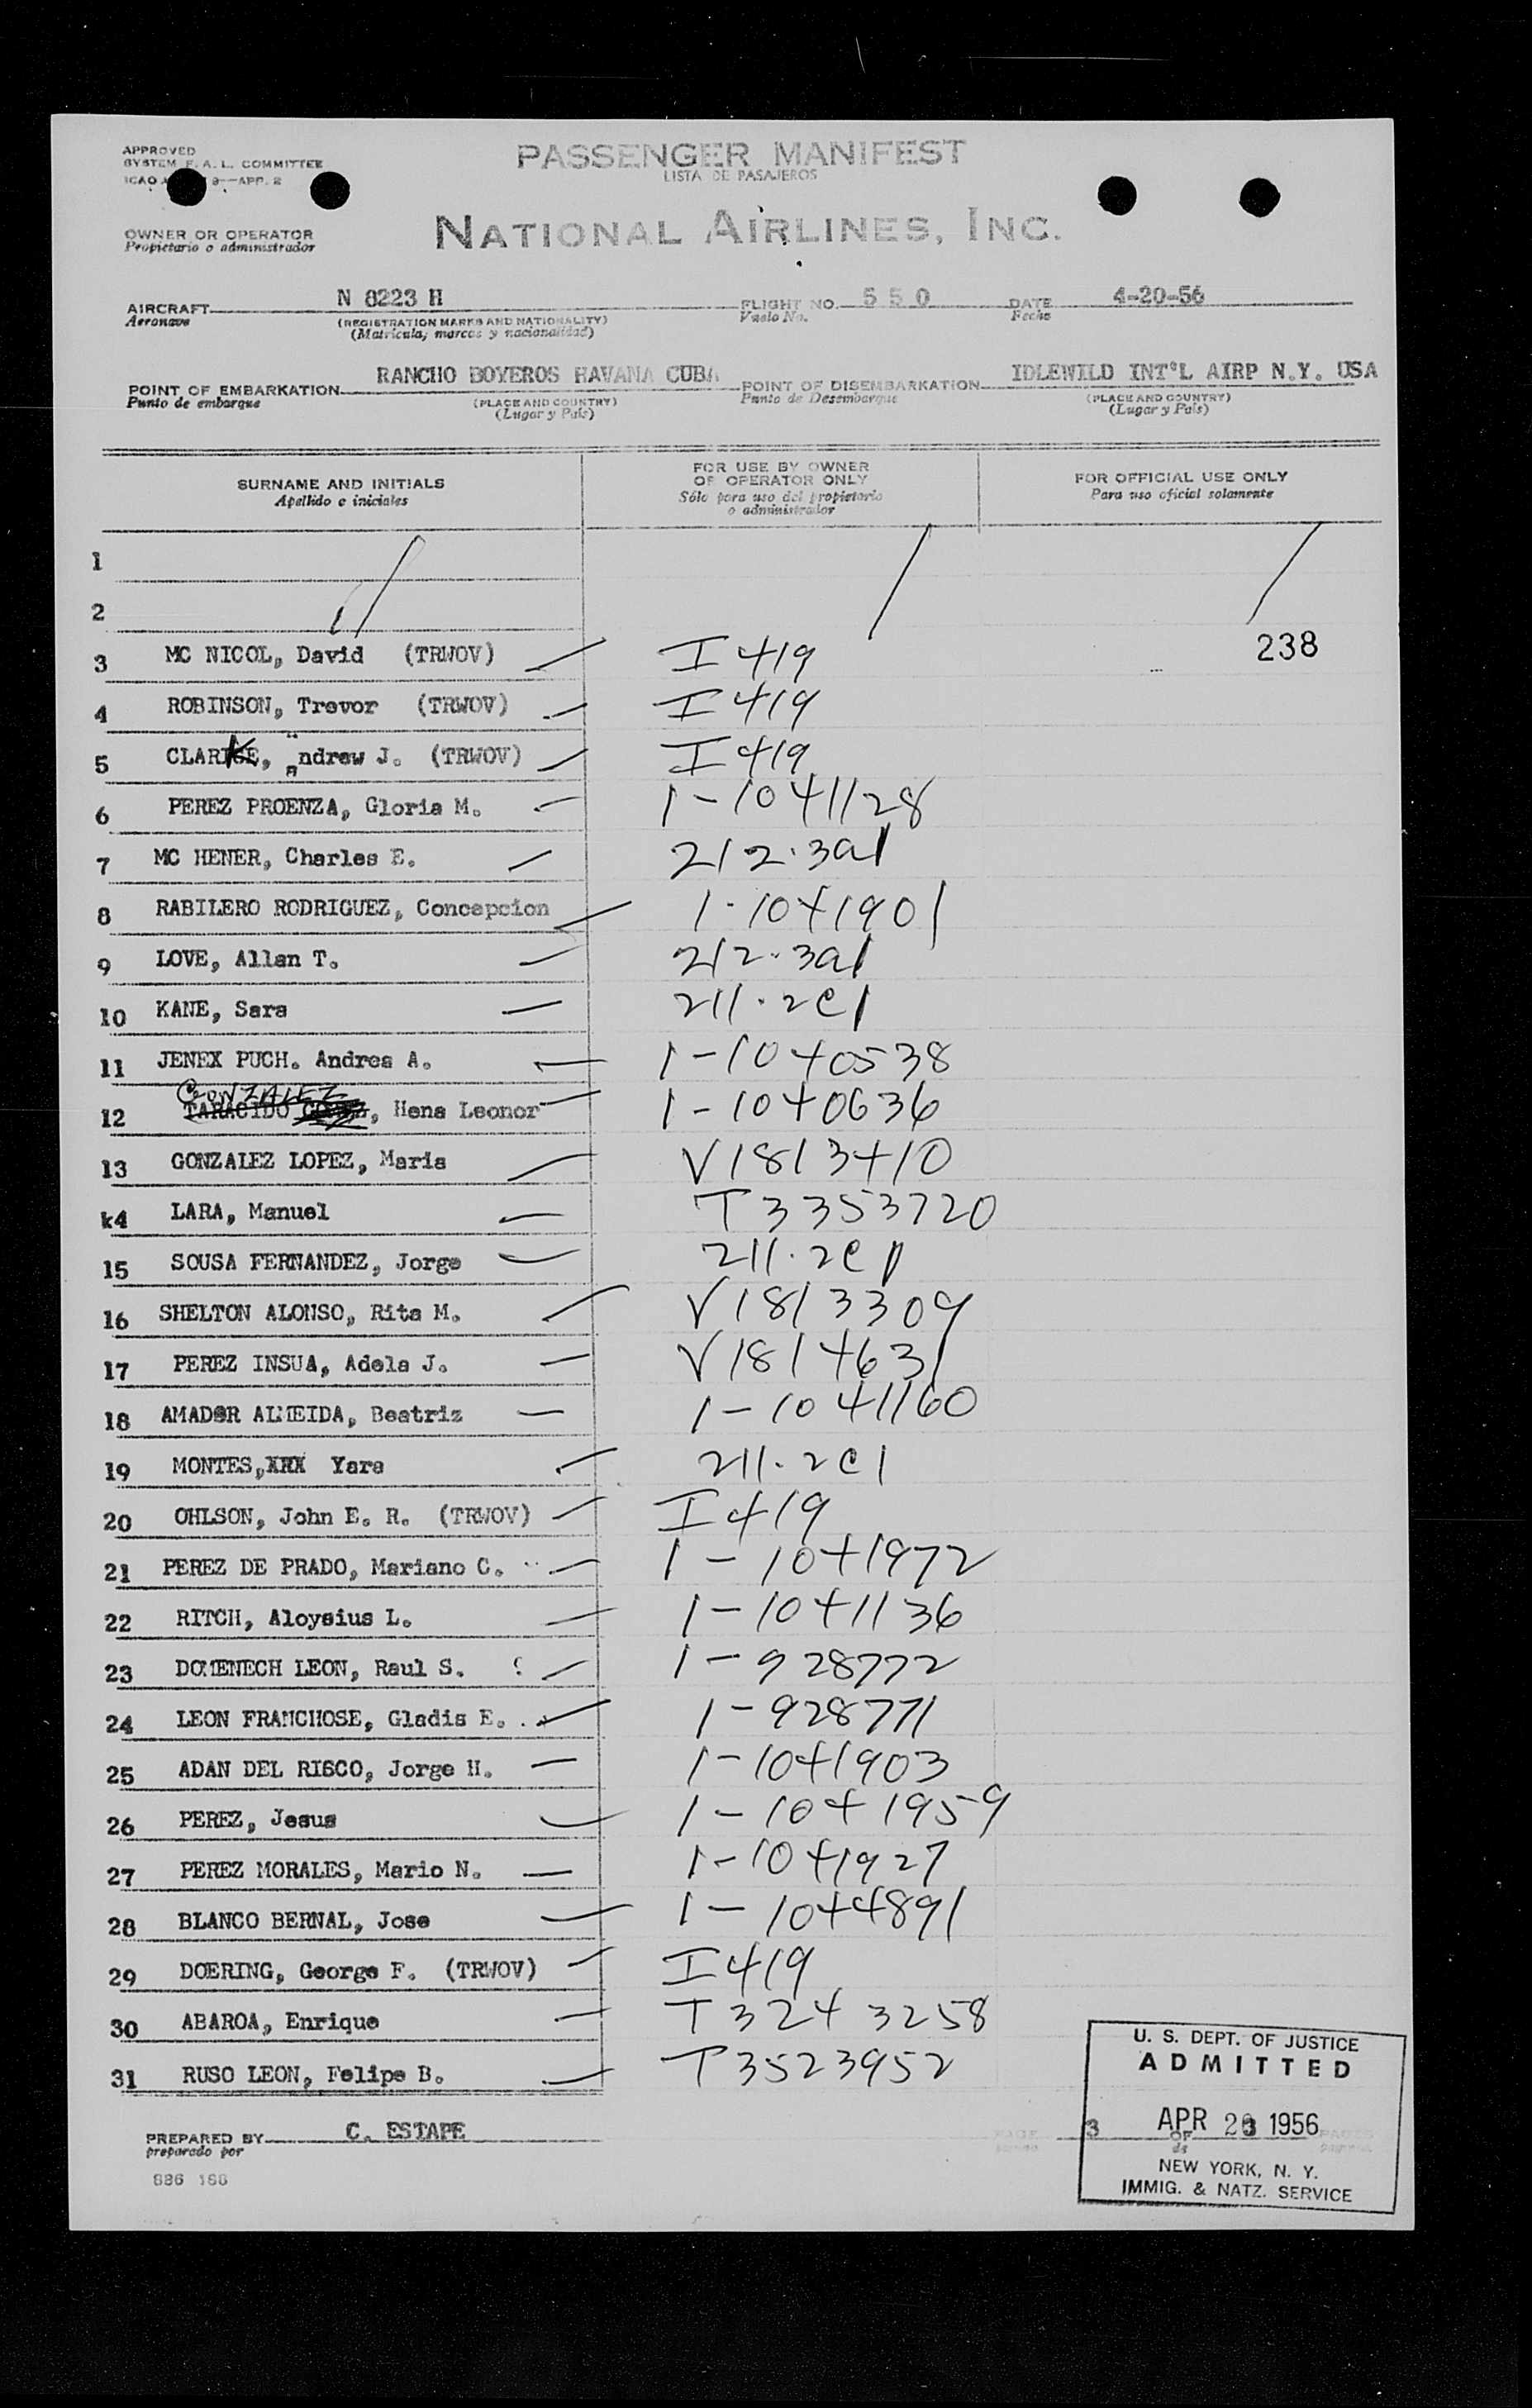 APPROVED
SYSTEM F. A. L. COMMITTEE
ICAO 9—APP. 2
PASSENGER MANIFEST
LISTA DE PASAJEROS
OWNER OR OPERATOR
Propietario o administrador
NATIONAL AIRLINES, INC.
AIRCRAFT N 8223 H FLIGHT NO. 5 5 0 DATE 4-20-56
Aeronave (REGISTRATION MARKS AND NATIONALITY) Vuelo No. Fecha
(Matricula, marcas y nacionalidad)
POINT OF EMBARKATION RANCHO BOYEROS HAVANA CUBA POINT OF DISEMBARKATION IDLEWILD INT'L AIRP N.Y. USA
Punto de embarque (PLACE AND COUNTRY) Punto de Desembarque (PLACE AND COUNTRY)
(Lugar y País) (Lugar y País)
SURNAME AND INITIALS
Apellido e iniciales
FOR USE BY OWNER
OR OPERATOR ONLY
Sólo para uso del propietario
o administrador
FOR OFFICIAL USE ONLY
Para uso oficial solamente
1
2
3 MC NICOL, David (TRWOV) I 419 238
4 ROBINSON, Trevor (TRWOV) I 419
5 CLARKE, Andrew J. (TRWOV) I 419
6 PEREZ PROENZA, Gloria M. 1-1041128
7 MC HENER, Charles E. 212.3a1
8 RABILERO RODRIGUEZ, Concepcion 1-1041901
9 LOVE, Allan T. 212.3a1
10 KANE, Sara 211.2c1
11 JENEX PUCH. Andres A. 1-1040538
GONZALEZ
12 TARACIDO, Hena Leonor 1-1040636
13 GONZALEZ LOPEZ, Maria V1813410
k4 LARA, Manuel T3353720
15 SOUSA FERNANDEZ, Jorge 211.2c1
16 SHELTON ALONSO, Rita M. V1813309
17 PEREZ INSUA, Adela J. V1814631
18 AMADOR ALMEIDA, Beatriz 1-1041160
19 MONTES,XXX Yara 211.2c1
20 OHLSON, John E. R. (TRWOV) I 419
21 PEREZ DE PRADO, Mariano C. 1-1041972
22 RITCH, Aloysius L. 1-1041136
23 DOMENECH LEON, Raul S. 1-928772
24 LEON FRANCHOSE, Gladis E. 1-928771
25 ADAN DEL RISCO, Jorge H. 1-1041903
26 PEREZ, Jesus 1-1041959
27 PEREZ MORALES, Mario N. 1-1041927
28 BLANCO BERNAL, Jose 1-1044891
29 DOERING, George F. (TRWOV) I 419
30 ABAROA, Enrique T3243258
31 RUSO LEON, Felipe B. T3523952
PREPARED BY C. ESTAPE
preparado por
886 166
PAGE 3 OF PAGES
de
U. S. DEPT. OF JUSTICE
ADMITTED
APR 1956
NEW YORK, N. Y.
IMMIG. & NATZ. SERVICE